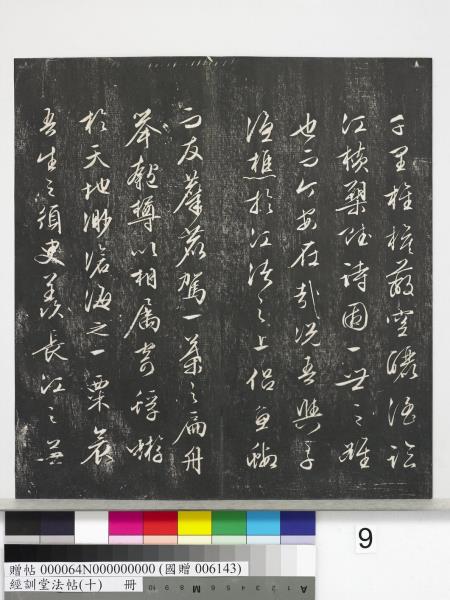 千里旌旗蔽空釃酒臨
江橫槊賦詩固一世之雄
也而今安在哉況吾與子
漁樵於江渚之上侶魚蝦
而友麋鹿駕一葉之扁舟
舉匏樽以相屬寄蜉蝣
於天地渺滄海之一粟哀
吾生之須臾羨長江之無
9
贈帖 000064N000000000 (國贈 006143)
經訓堂法帖(十) 冊